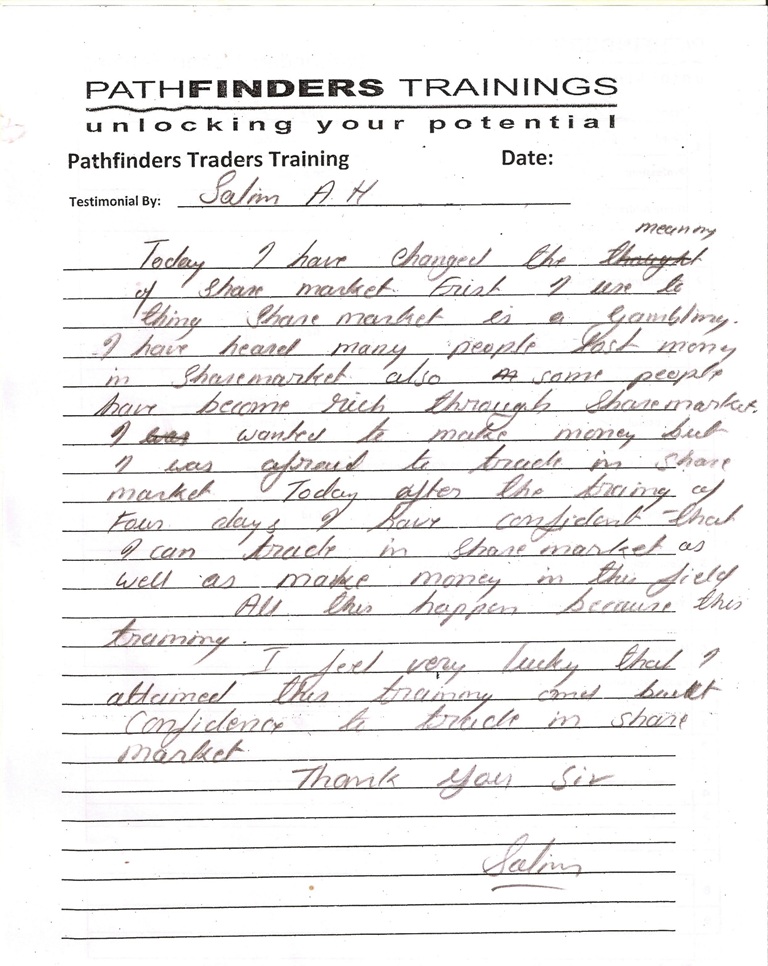 PATHFINDERS TRAININGS
unlocking your potential
Pathfinders Traders Training Date:
Testimonial By: Salim A H
meaning
Today I have changed the thought
of share market. Frist I use to
thing share market is a Gambling.
I have heared many people lost money
in sharemarket also some people
have become rich through sharemarket.
I was wanted to make money but
I was afroud to trade in share
market Today after the traing of
Four days I have confident that
I can trade in share market as
well as make money in this field
All this happen because this
training.
I feel very lucky that I
attained this training and built
confidence to trade in share
market
Thank you Sir
Salim